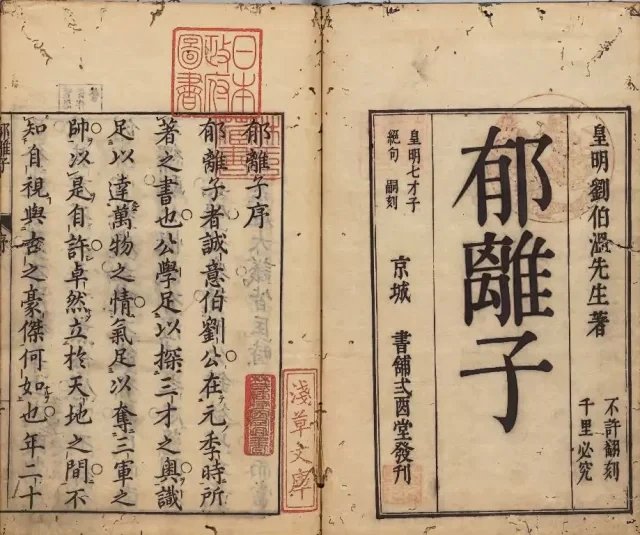 皇明劉伯温先生著
不許翻刻
千里必究
郁離子
京城 書鋪弍酉堂發刊
皇明七才子
絕句 嗣刻
日本
政府
圖書
淺草文庫
郁離子序
郁離子者誠意伯劉公在元季時所
著之書也公學足以探三才之奧識
足以達萬物之情氣足以奪三軍之
帥以是自許卓然立於天地之間不
知自視與古之豪傑何如也年二十
郁離子
序